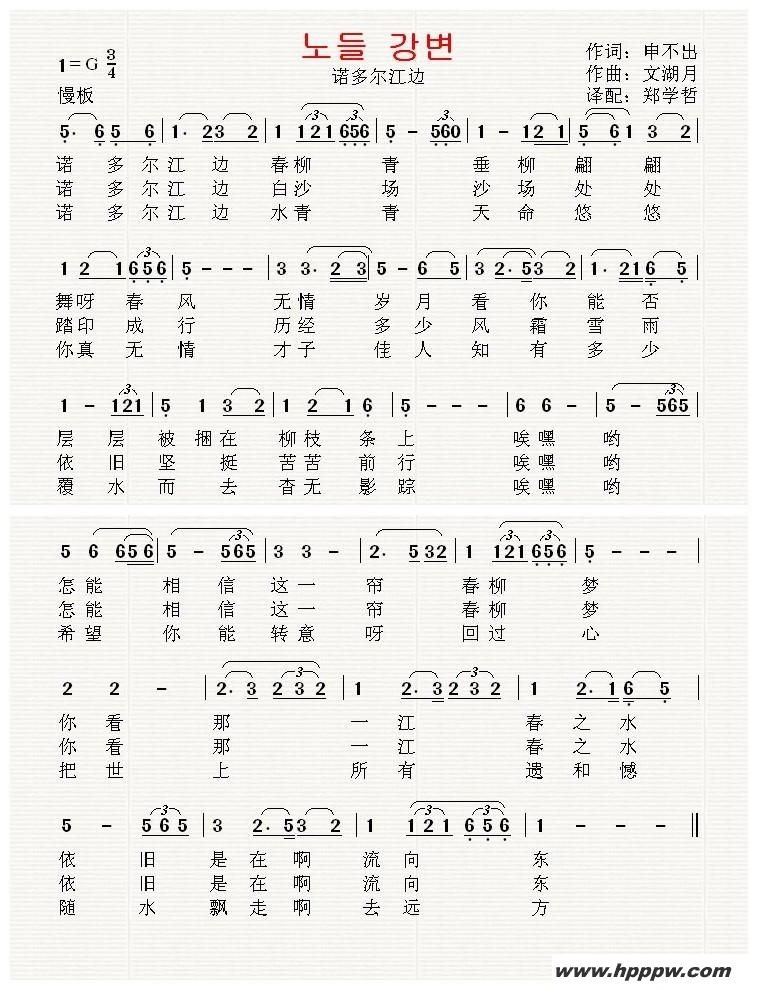 노들 강변
1=G 3/4
诺多尔江边
作词：申不出
作曲：文湖月
译配：郑学哲
慢板
5· 6 5 6 | 1· 2 3 2 | 1 1 2 1 6 5 6 | 5 - 5 6 0 | 1 - 1 2 1 | 5 6 1 |
诺 多 尔 江 边 春 柳 青 垂 柳 翩 翩
诺 多 尔 江 边 白 沙 场 沙 场 处 处
诺 多 尔 江 边 水 青 青 天 命 悠 悠
1 2 1 6 5 6 | 5 - - - | 3 3· 2 3 | 5 - 6 5 | 3 2· 5 3 2 | 1· 2 1 6 5 |
舞 呀 春 风 无 情 岁 月 看 你 能 否
踏 印 成 行 历 经 多 少 风 霜 雪 雨
你 真 无 情 才 子 佳 人 知 有 多 少
1 - 1 2 1 | 5 1 3 2 | 1 2 1 6 | 5 - - - | 6 6 - | 5 - 5 6 5 |
层 层 被 捆 在 柳 枝 条 上 唉 嘿 哟
依 旧 坚 挺 苦 苦 前 行 唉 嘿 哟
覆 水 而 去 杳 无 影 踪 唉 嘿 哟
5 6 6 5 6 | 5 - 5 6 5 | 3 3 - | 2· 5 3 2 | 1 1 2 1 6 5 6 | 5 - - - |
怎 能 相 信 这 一 帘 春 柳 梦
怎 能 相 信 这 一 帘 春 柳 梦
希 望 你 能 转 意 呀 回 过 心
2 2 - | 2· 3 2 3 2 | 1 2· 3 2 3 2 | 1 2· 1 6 5 |
你 看 那 一 江 春 之 水
你 看 那 一 江 春 之 水
把 世 上 所 有 遗 和 憾
5 - 5 6 5 | 3 2· 5 3 2 | 1 1 2 1 6 5 6 | 1 - - ‖
依 旧 是 在 啊 流 向 东
依 旧 是 在 啊 流 向 东
随 水 飘 走 啊 去 远 方
www.hpppw.com